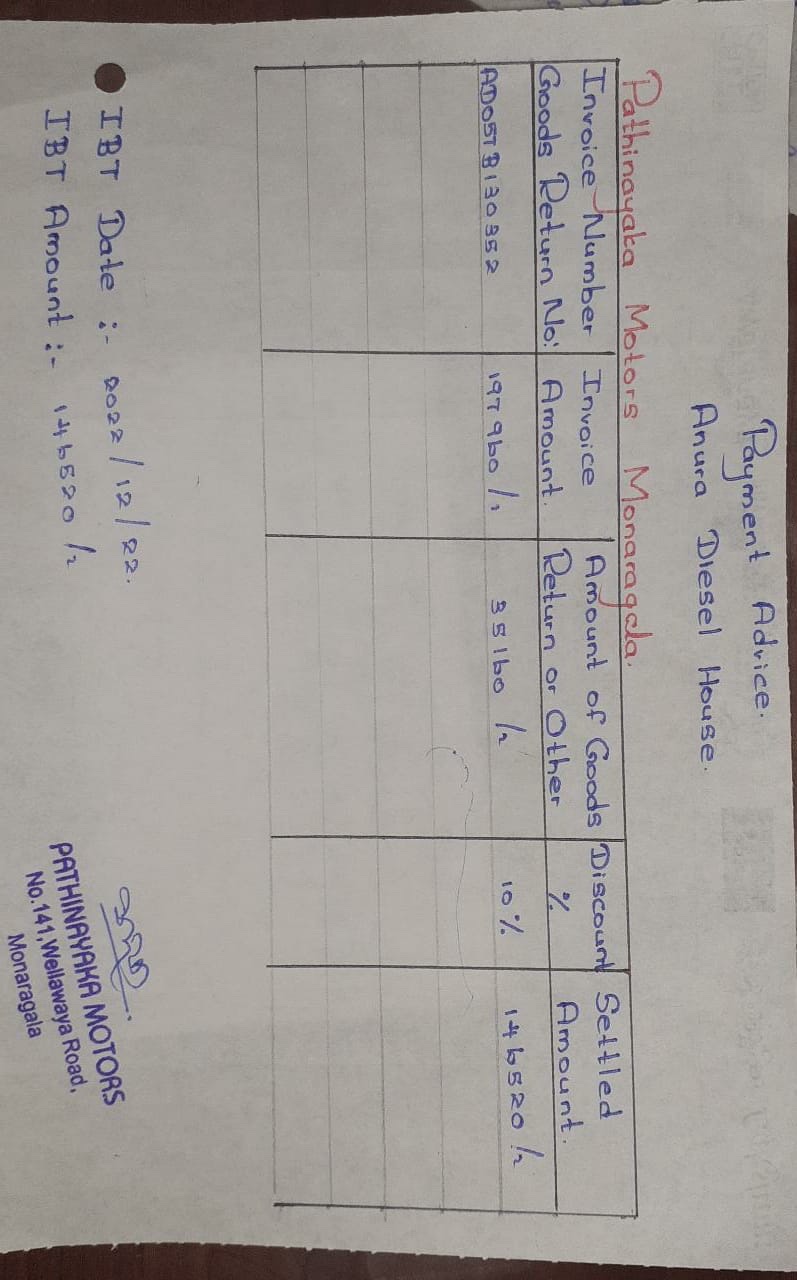 Payment Advice.
Anura Diesel House.
Pathinayaka Motors Monaragala.
Invoice Number Invoice Amount of Goods Discount Settled
Goods Return No: Amount. Return or Other % Amount.
AD05TB130352 197960/= 35160/= 10% 146520/=
IBT Date :- 2022/12/22.
IBT Amount :- 146520/=
PATHINAYAKA MOTORS
No.141,Wellawaya Road,
Monaragala